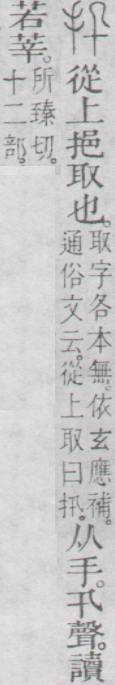 扟從上挹取也。取字各本無。依玄應補。通俗文云。從上取曰扟。从手。卂聲。讀
若莘。所臻切。十二部。